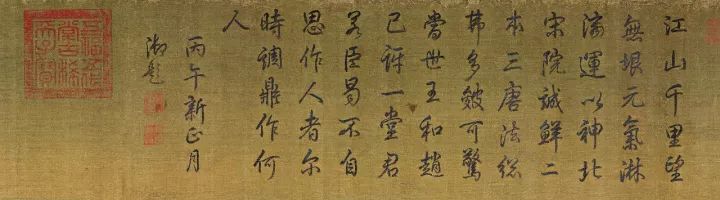 江山千里望
無垠元氣淋
漓運以神北
宋院誠鮮二
本三唐法総
弗多皴可驚
當世王和趙
已訝一堂君
若臣曷不自
思作人者尔
時調鼎作何
人
丙午新正月
御題
五福五代
堂古稀
天子寶